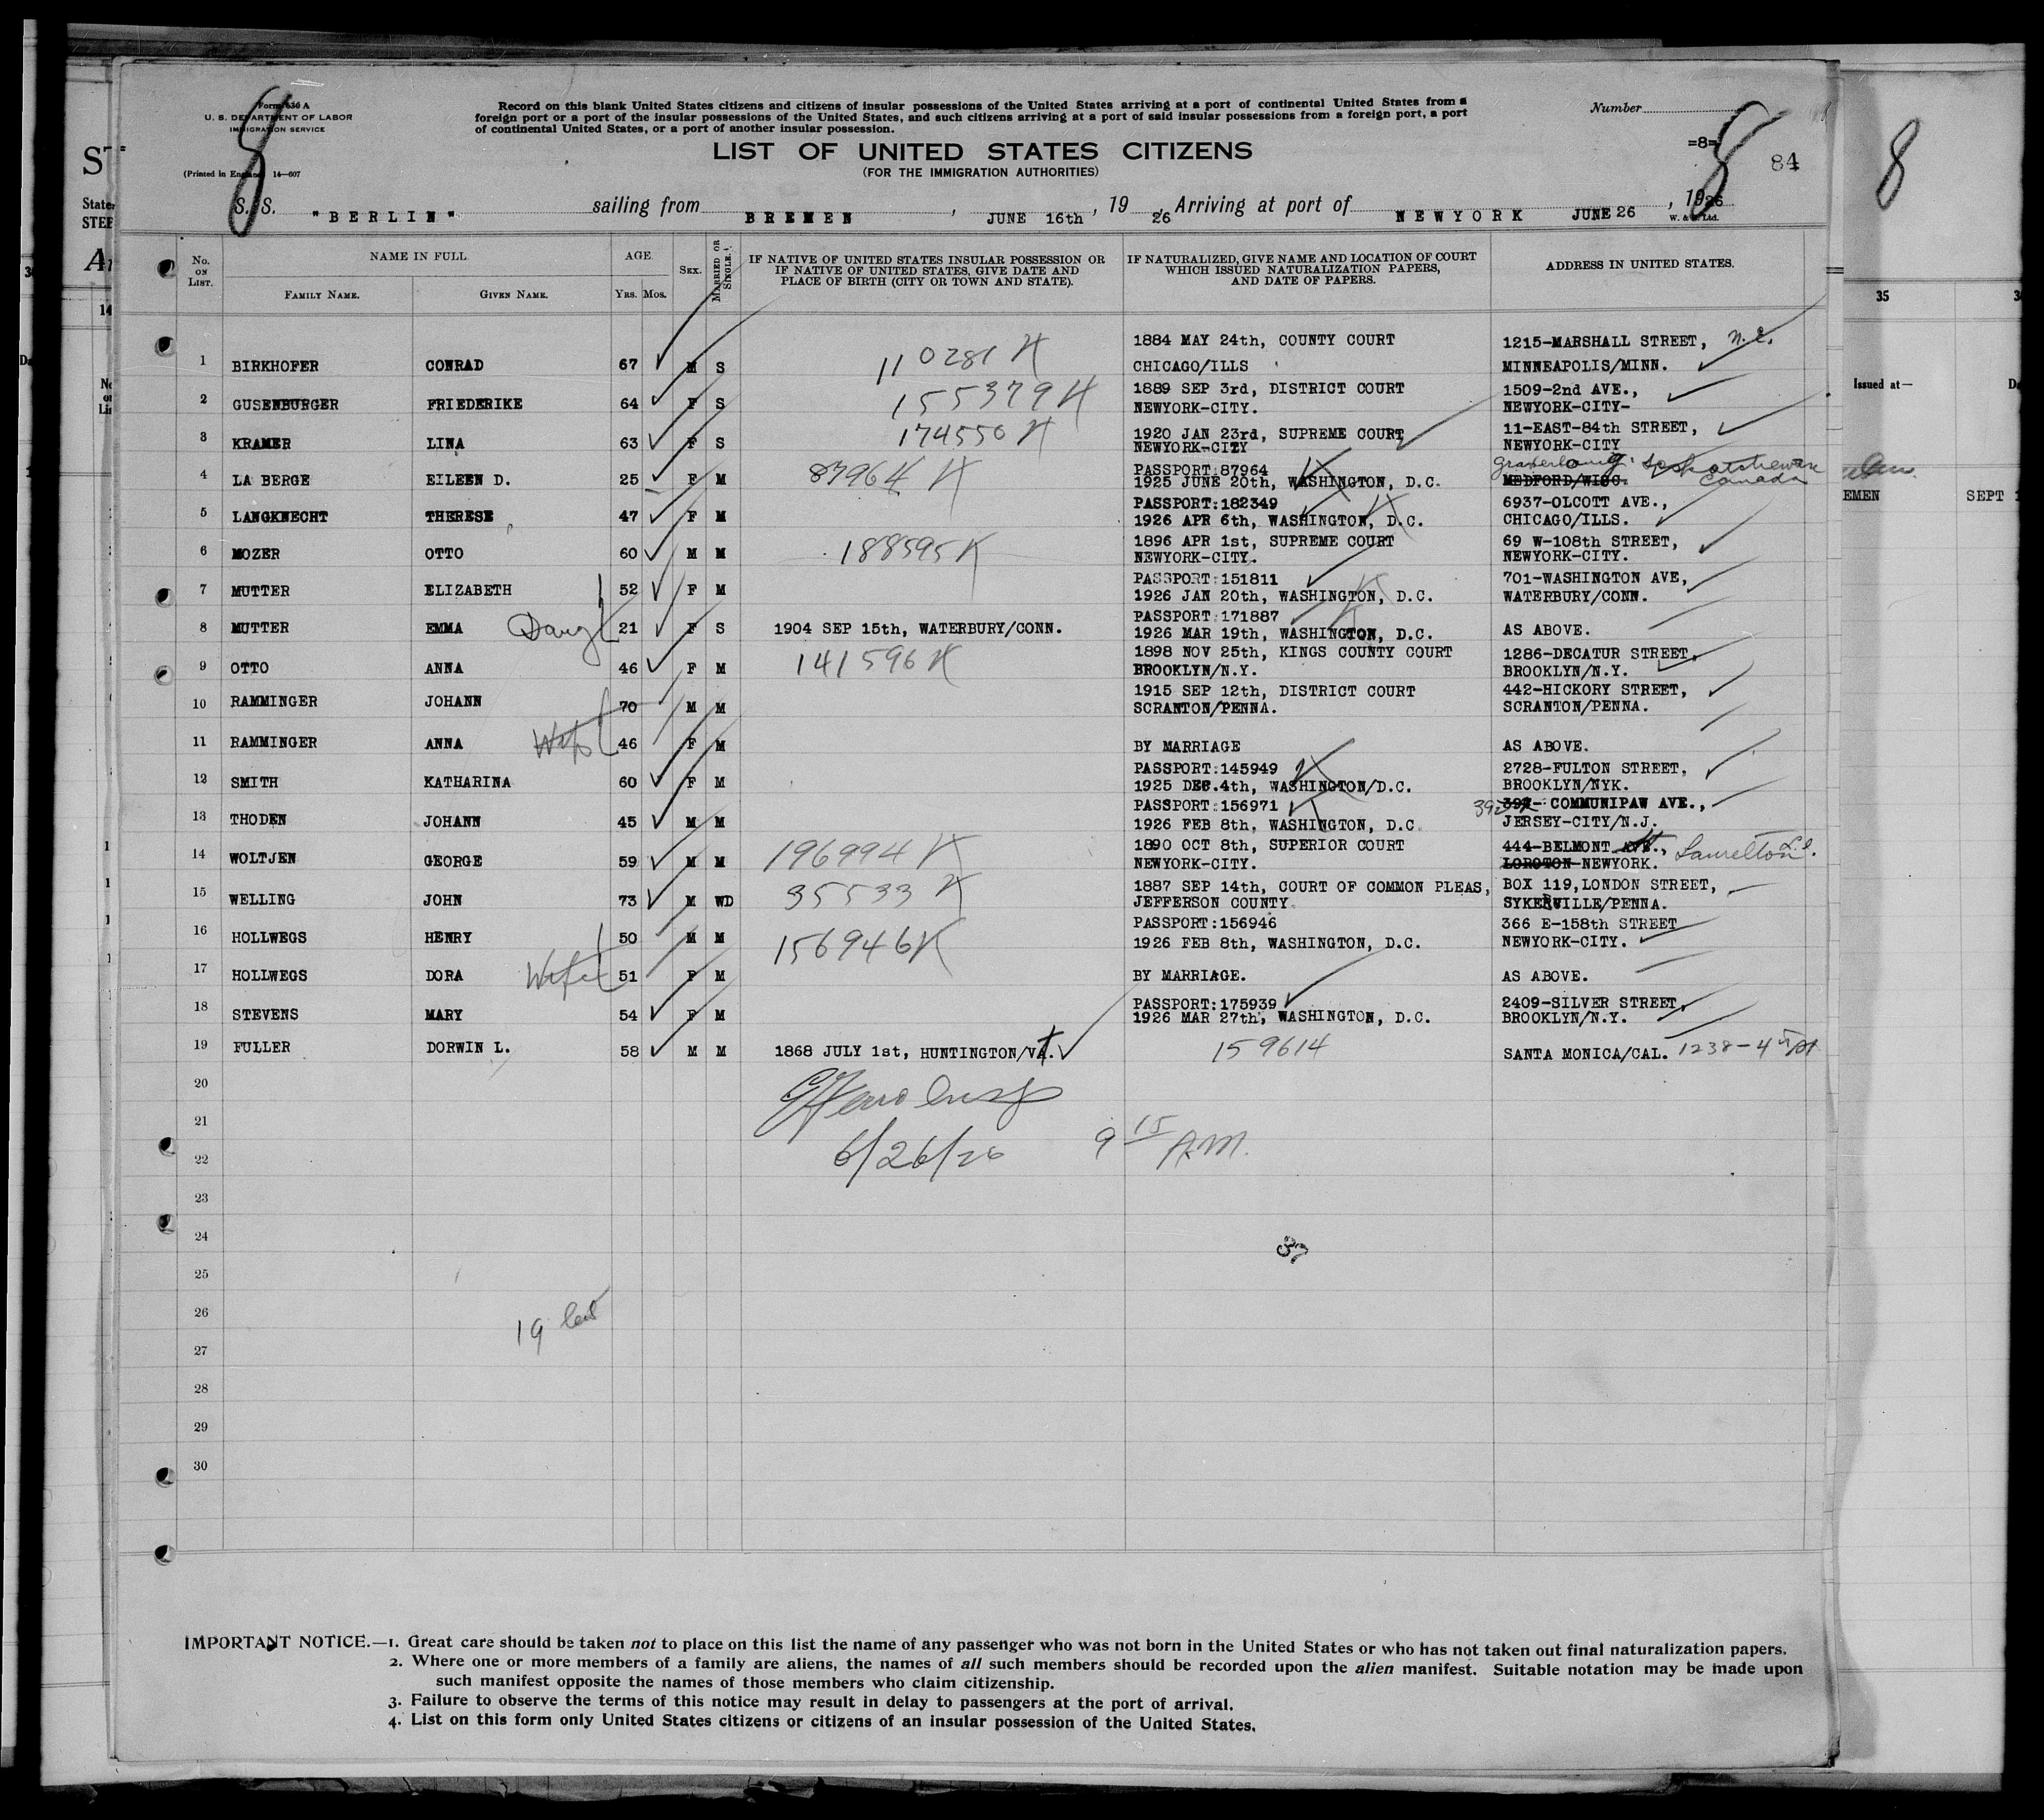 Form 630 A
U. S. DEPARTMENT OF LABOR
IMMIGRATION SERVICE
(Printed in England) 14—607
Record on this blank United States citizens and citizens of insular possessions of the United States arriving at a port of continental United States from a
foreign port or a port of the insular possessions of the United States, and such citizens arriving at a port of said insular possessions from a foreign port, a port
of continental United States, or a port of another insular possession.
Number
LIST OF UNITED STATES CITIZENS
(FOR THE IMMIGRATION AUTHORITIES)
=8=
8
8
84
8
S. S. "BERLIN" sailing from BREMEN, JUNE 16th, 1926, Arriving at port of NEWYORK JUNE 26, 1926
W. & S. Ltd.
No. ON LIST.
NAME IN FULL
FAMILY NAME. GIVEN NAME.
AGE
YRS. MOS.
SEX.
MARRIED OR SINGLE.
IF NATIVE OF UNITED STATES INSULAR POSSESSION OR
IF NATIVE OF UNITED STATES, GIVE DATE AND
PLACE OF BIRTH (CITY OR TOWN AND STATE).
IF NATURALIZED, GIVE NAME AND LOCATION OF COURT
WHICH ISSUED NATURALIZATION PAPERS,
AND DATE OF PAPERS.
ADDRESS IN UNITED STATES.
1884 MAY 24th, COUNTY COURT 1215-MARSHALL STREET, N.E.
1 BIRKHOFER CONRAD 67 M S 110281 CHICAGO/ILLS MINNEAPOLIS/MINN.
1889 SEP 3rd, DISTRICT COURT 1509-2nd AVE.,
2 GUSENBURGER FRIEDERIKE 64 F S 155379 NEWYORK-CITY. NEWYORK-CITY-
1920 JAN 23rd, SUPREME COURT 11-EAST-84th STREET,
3 KRAMER LINA 63 F S 174550 NEWYORK-CITY NEWYORK-CITY
PASSPORT:87964 Saskatchewan
4 LA BERGE EILEEN D. 25 F M 87964 1925 JUNE 20th, WASHINGTON, D.C. MEDFORD/WISC. Canada
PASSPORT:182349 6937-OLCOTT AVE.,
5 LANGKNECHT THERESE 47 F M 1926 APR 6th, WASHINGTON, D.C. CHICAGO/ILLS.
1896 APR 1st, SUPREME COURT 69 W-108th STREET,
6 MOZER OTTO 60 M M 188595 NEWYORK-CITY. NEWYORK-CITY.
PASSPORT:151811 701-WASHINGTON AVE,
7 MUTTER ELIZABETH 52 F M 1926 JAN 20th, WASHINGTON, D.C. WATERBURY/CONN.
PASSPORT:171887
8 MUTTER EMMA Daugt 21 F S 1904 SEP 15th, WATERBURY/CONN. 1926 MAR 19th, WASHINGTON, D.C. AS ABOVE.
1898 NOV 25th, KINGS COUNTY COURT 1286-DECATUR STREET,
9 OTTO ANNA 46 F M 141596 BROOKLYN/N.Y. BROOKLYN/N.Y.
1915 SEP 12th, DISTRICT COURT 442-HICKORY STREET,
10 RAMMINGER JOHANN 70 M M SCRANTON/PENNA. SCRANTON/PENNA.
11 RAMMINGER ANNA Wife 46 F M BY MARRIAGE AS ABOVE.
PASSPORT:145949 2728-FULTON STREET,
12 SMITH KATHARINA 60 F M 1925 DEC.4th, WASHINGTON/D.C. BROOKLYN/NYK.
PASSPORT:156971 392- COMMUNIPAW AVE.,
13 THODEN JOHANN 45 M M 1926 FEB 8th, WASHINGTON, D.C. JERSEY-CITY/N.J.
1890 OCT 8th, SUPERIOR COURT 444-BELMONT AVE.,
14 WOLTJEN GEORGE 59 M M 196994 NEWYORK-CITY. LOROTON NEWYORK. Laurelton L.I.
1887 SEP 14th, COURT OF COMMON PLEAS, BOX 119,LONDON STREET,
15 WELLING JOHN 73 M WD 35533 JEFFERSON COUNTY. SYKESVILLE/PENNA.
PASSPORT:156946 366 E-158th STREET
16 HOLLWEGS HENRY 50 M M 156946 1926 FEB 8th, WASHINGTON, D.C. NEWYORK-CITY.
17 HOLLWEGS DORA Wife 51 F M BY MARRIAGE. AS ABOVE.
PASSPORT:175939 2409-SILVER STREET,
18 STEVENS MARY 54 F M 1926 MAR 27th, WASHINGTON, D.C. BROOKLYN/N.Y.
19 FULLER DORWIN L. 58 M M 1868 JULY 1st, HUNTINGTON/VT. 159614 SANTA MONICA/CAL. 1238-4th St
20
21
6/26/26 9 15 A.M.
22
23
24
25
26
19
27
28
29
30
IMPORTANT NOTICE.—1. Great care should be taken not to place on this list the name of any passenger who was not born in the United States or who has not taken out final naturalization papers.
2. Where one or more members of a family are aliens, the names of all such members should be recorded upon the alien manifest. Suitable notation may be made upon
such manifest opposite the names of those members who claim citizenship.
3. Failure to observe the terms of this notice may result in delay to passengers at the port of arrival.
4. List on this form only United States citizens or citizens of an insular possession of the United States.
35
Issued at—
EMEN SEPT 1